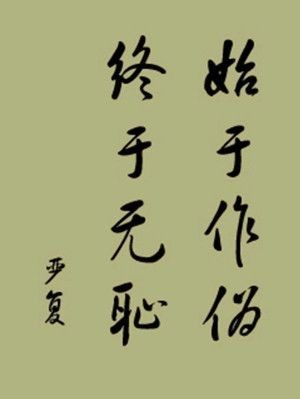 始于作伪
终于无耻
严复